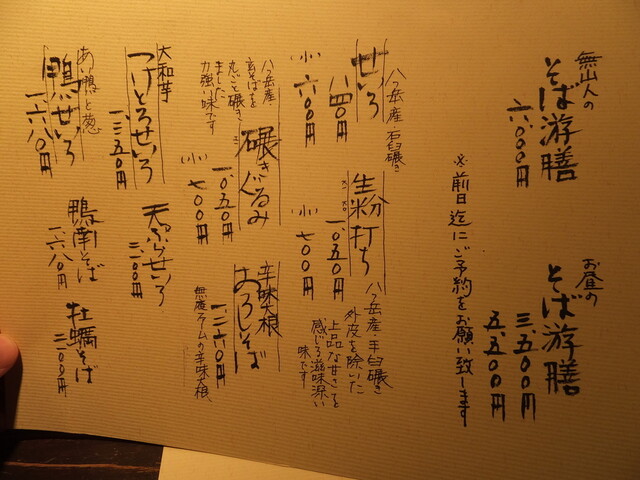 無山人の
そば游膳
六、〇〇〇円
お昼の
そば游膳
三、五〇〇円
五、五〇〇円
※前日迄にご予約をお願い致します
八ヶ岳産・石臼碾き
せいろ
八四〇円
(小) 六〇〇円
八ヶ岳産・手臼碾き
外皮を除いた
上品な甘さを
感じる滋味深い
味です
生粉打ち
一、〇五〇円
(小) 七〇〇円
八ヶ岳産
玄そばを
丸ごと碾き
ました
力強い味です
碾きぐるみ
一、〇五〇円
(小) 七〇〇円
辛味大根
おろしそば
一、二六〇円
無農ファームの辛味大根
大和芋
つけとろせいろ
一、三五〇円
天ぷらせいろ
二、一〇〇円
あい鴨と葱
鴨せいろ
一、六八〇円
鴨南そば
一、六八〇円
牡蠣そば
二、一〇〇円